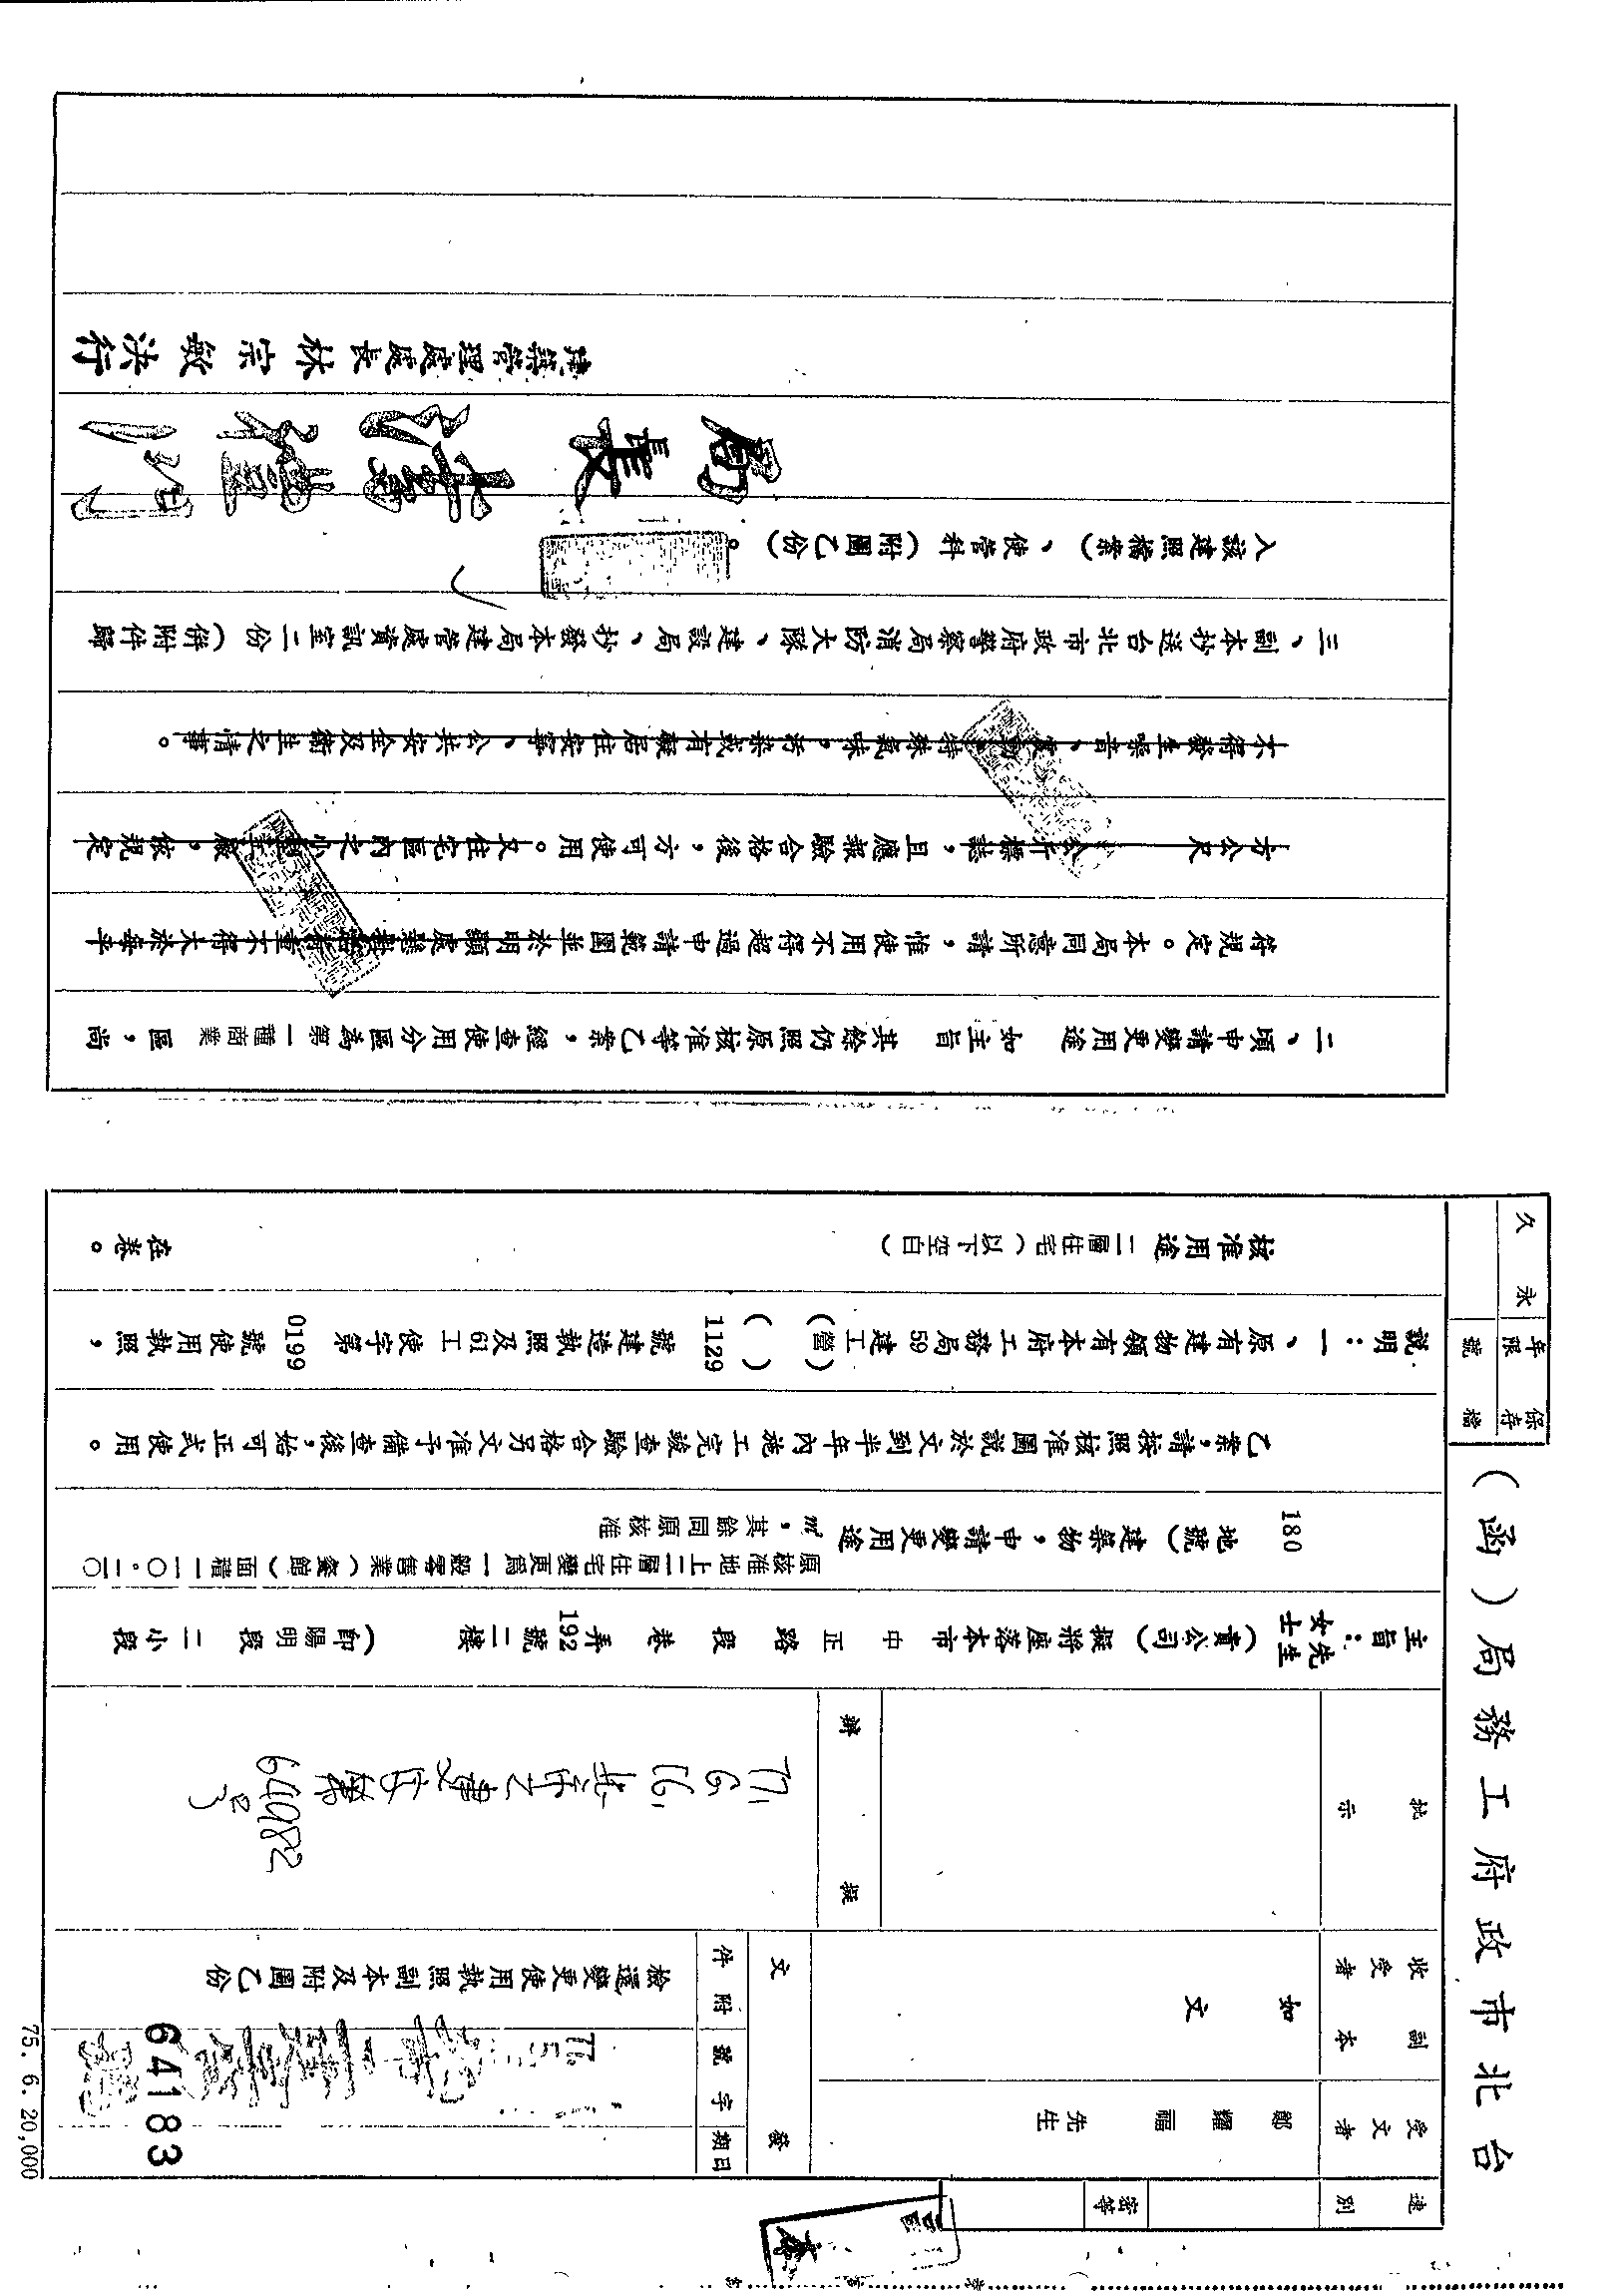 台北市政府工務局（函）
保存年限
永久
檔號
速別
密等
受文者
鄭耀福 先生
副本收受者
如文
批示
擬辦
發文
日期
字號
附件
77.
64183
檢還變更使用執照副本及附圖乙份
77.6.16.
64982
主旨：先生女士（貴公司）擬將座落本市 中正 路 段 巷 弄 192 號二樓 （卽陽明段 二 小段
180 地號）建築物，申請變更用途
原核准地上二層住宅變更爲一般零售業（餐館）面積一一〇·二〇
㎡，其餘同原核准
乙案，請按照核准圖說於文到半年內施工完竣查驗合格另文准予備查後，始可正式使用。
說明：一、原有建物領有本府工務局 59 建工（營）（ ）1129 號建造執照及 61 工 使字第 0199 號使用執照，
核准用途 二層住宅（以下空白） 在卷。
二、頃申請變更用途 如主旨 其餘仍照原核准等乙案，經查使用分區為第一種商業 區，尚
符規定。本局同意所請，惟使用不得超過申請範圍並於明顯處懸掛 重不得大於每平
方公尺 公斤標誌，且應報驗合格後，方可使用。又住宅區內之小 廠，依規定
不得發生噪音、 特殊氣味，污染或有礙居住安寧、公共安全及衛生之情事。
三、副本抄送台北市政府警察局消防大隊、建設局、抄發本局建管處資訊室二份（併附件歸
入該建照檔案）、使管科（附圖乙份）。
局長
建築管理處處長林宗敏決行
75. 6. 20,000